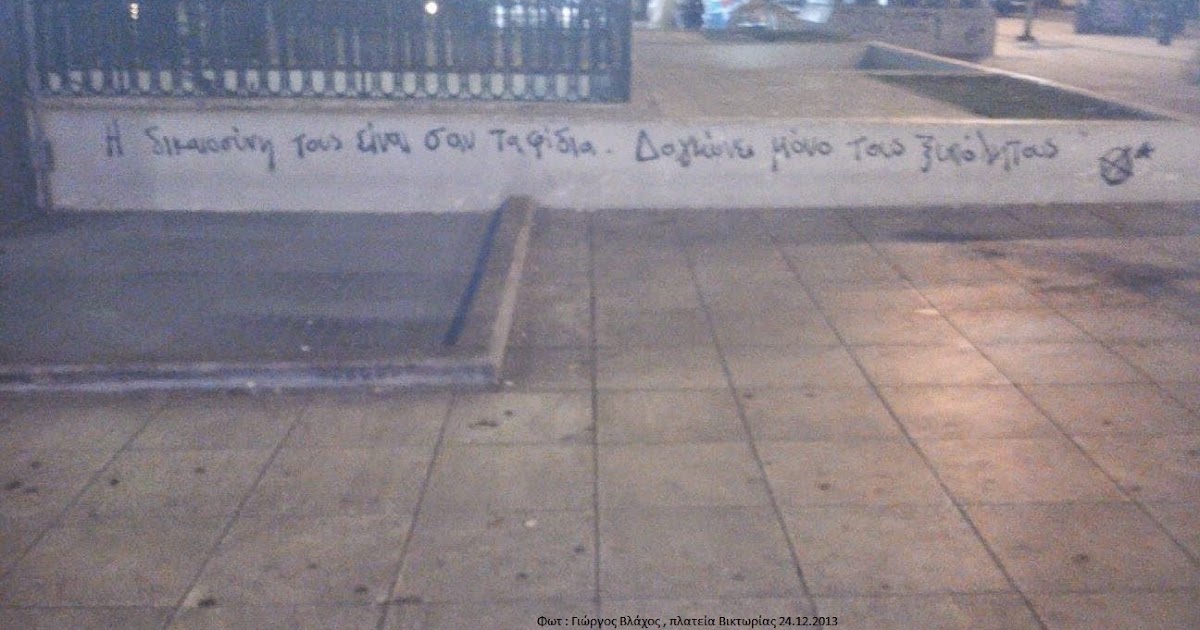 Η δικαιοσύνη τους είναι σαν τα φίδια. Δαγκώνει μόνο τους ξυπόλητους
Φωτ : Γιώργος Βλάχος , πλατεία Βικτωρίας 24.12.2013